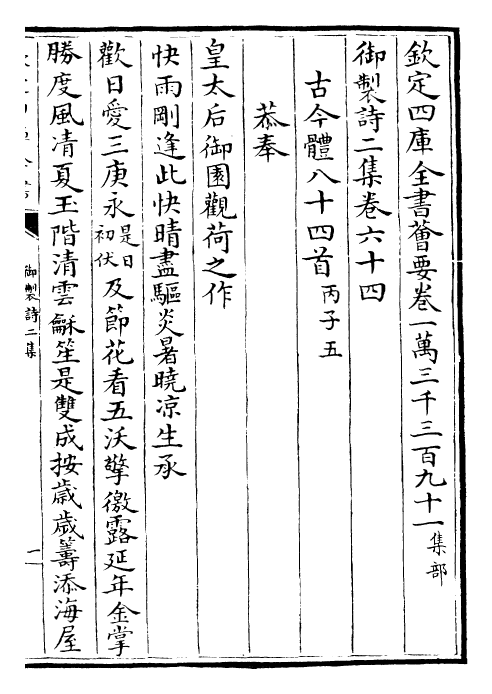 欽定四庫全書薈要卷一萬三千三百九十一集部
御製詩二集卷六十四
古今體八十四首丙子五
恭奉
皇太后御園觀荷之作
快雨剛逢此快晴盡驅炎暑曉凉生承
歡日愛三庚永是日初伏及節花看五沃擎徼露延年金掌
勝度風清夏玉階清雲龢笙是雙成按歲歲籌添海屋
御製詩二集
一